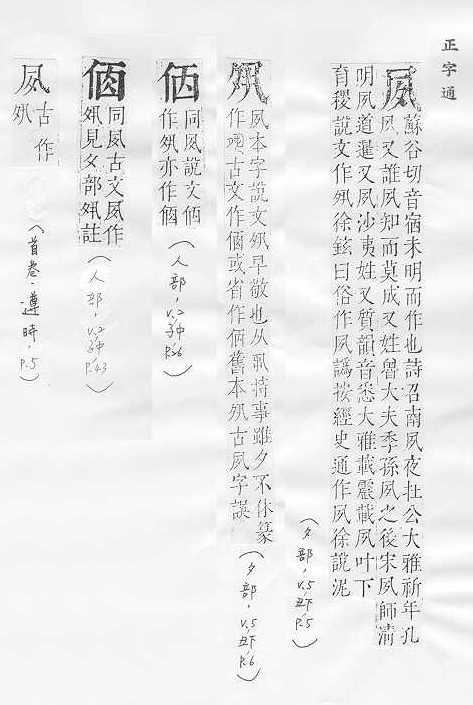 正字通
夙
蘇谷切音宿未明而作也詩召南夙夜在公大雅祈年孔
夙又誰夙知而莫成又姓魯大夫季孫夙之後宋夙師淸
明夙道暹又夙沙夷姓又質韻音悉大雅載震載夙叶下
育稷說文作𡖊徐鉉曰俗作夙譌按經史通作夙徐說泥
(夕部,V.5,丑下,P.5)
𡖊
夙本字說文𡖊早敬也从丮持事雖夕不休篆
作𡖊古文作㑉或省作㐁舊本𡖊古夙字誤
(夕部,V.5,丑下,P.6)
佰
同夙說文佰
作𡖊亦作㑉
(人部,V.2,子中,P.26)
㑉
同夙古文夙作
𡖊見夕部𡖊註
(人部,V.2,子中,P.43)
夙
古作
𡖊
(首卷·遵時,P.5)